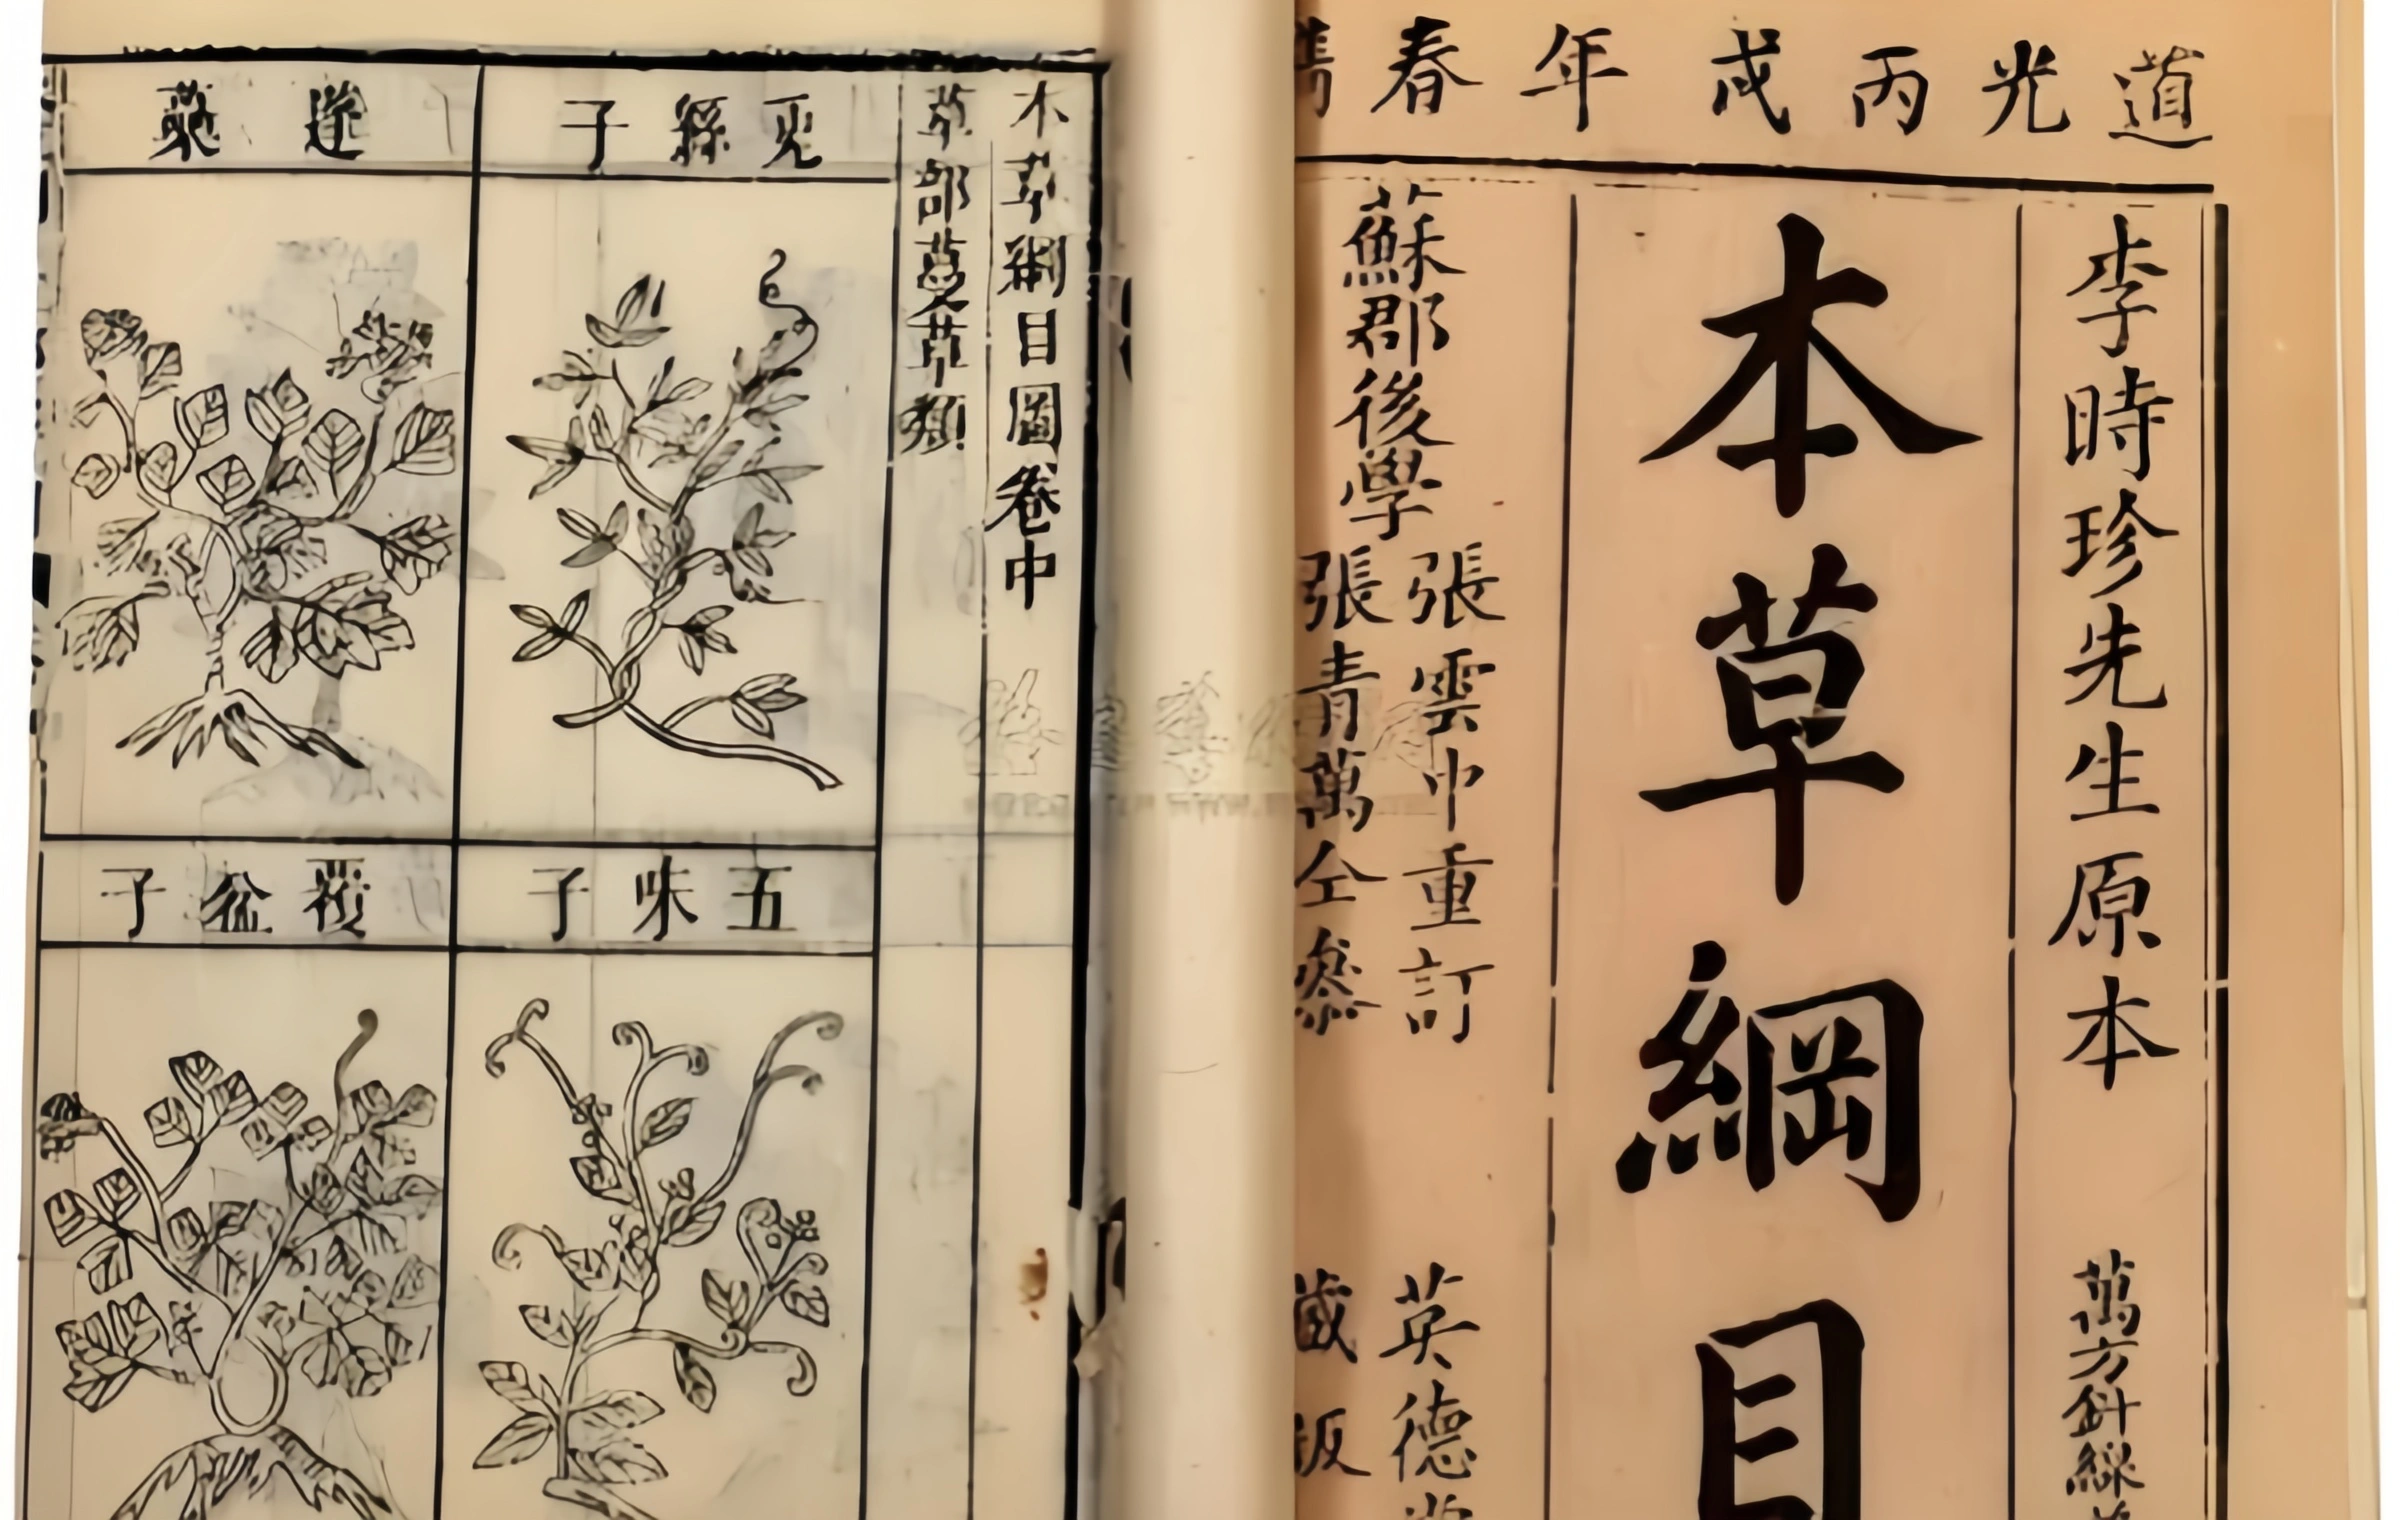 道光丙戌年春鐫
李時珍先生原本
萬方針線
本草綱目
蘇郡後學
張雲中重訂
張青萬仝參
英德堂
藏板
本草綱目圖卷中
草部蔓草類
兎絲子
蓬蘽
五味子
覆盆子